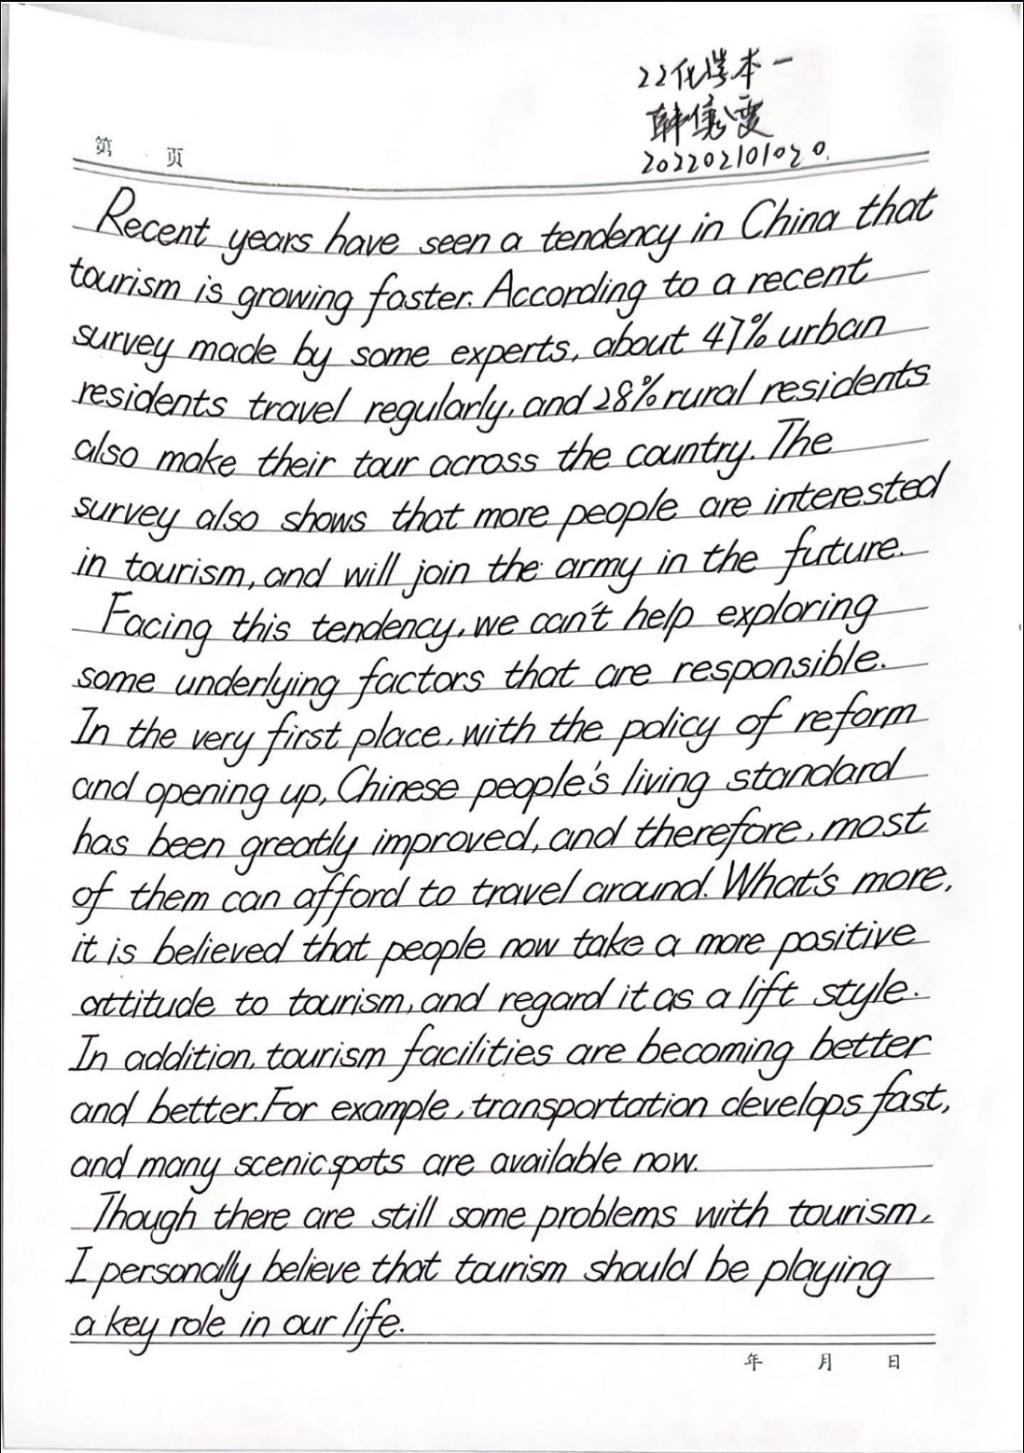 22化学本一
韩
202202101020.
第 页
Recent years have seen a tendency in China that
tourism is growing faster. According to a recent
survey made by some experts, about 47% urban
residents travel regularly, and 28% rural residents
also make their tour across the country. The
survey also shows that more people are interested
in tourism, and will join the army in the future.
Facing this tendency, we can't help exploring
some underlying factors that are responsible.
In the very first place, with the policy of reform
and opening up, Chinese people's living standard
has been greatly improved, and therefore, most
of them can afford to travel around. What's more,
it is believed that people now take a more positive
attitude to tourism, and regard it as a lift style.
In addition, tourism facilities are becoming better
and better. For example, transportation develops fast,
and many scenic spots are available now.
Though there are still some problems with tourism,
I personally believe that tourism should be playing
a key role in our life.
年 月 日